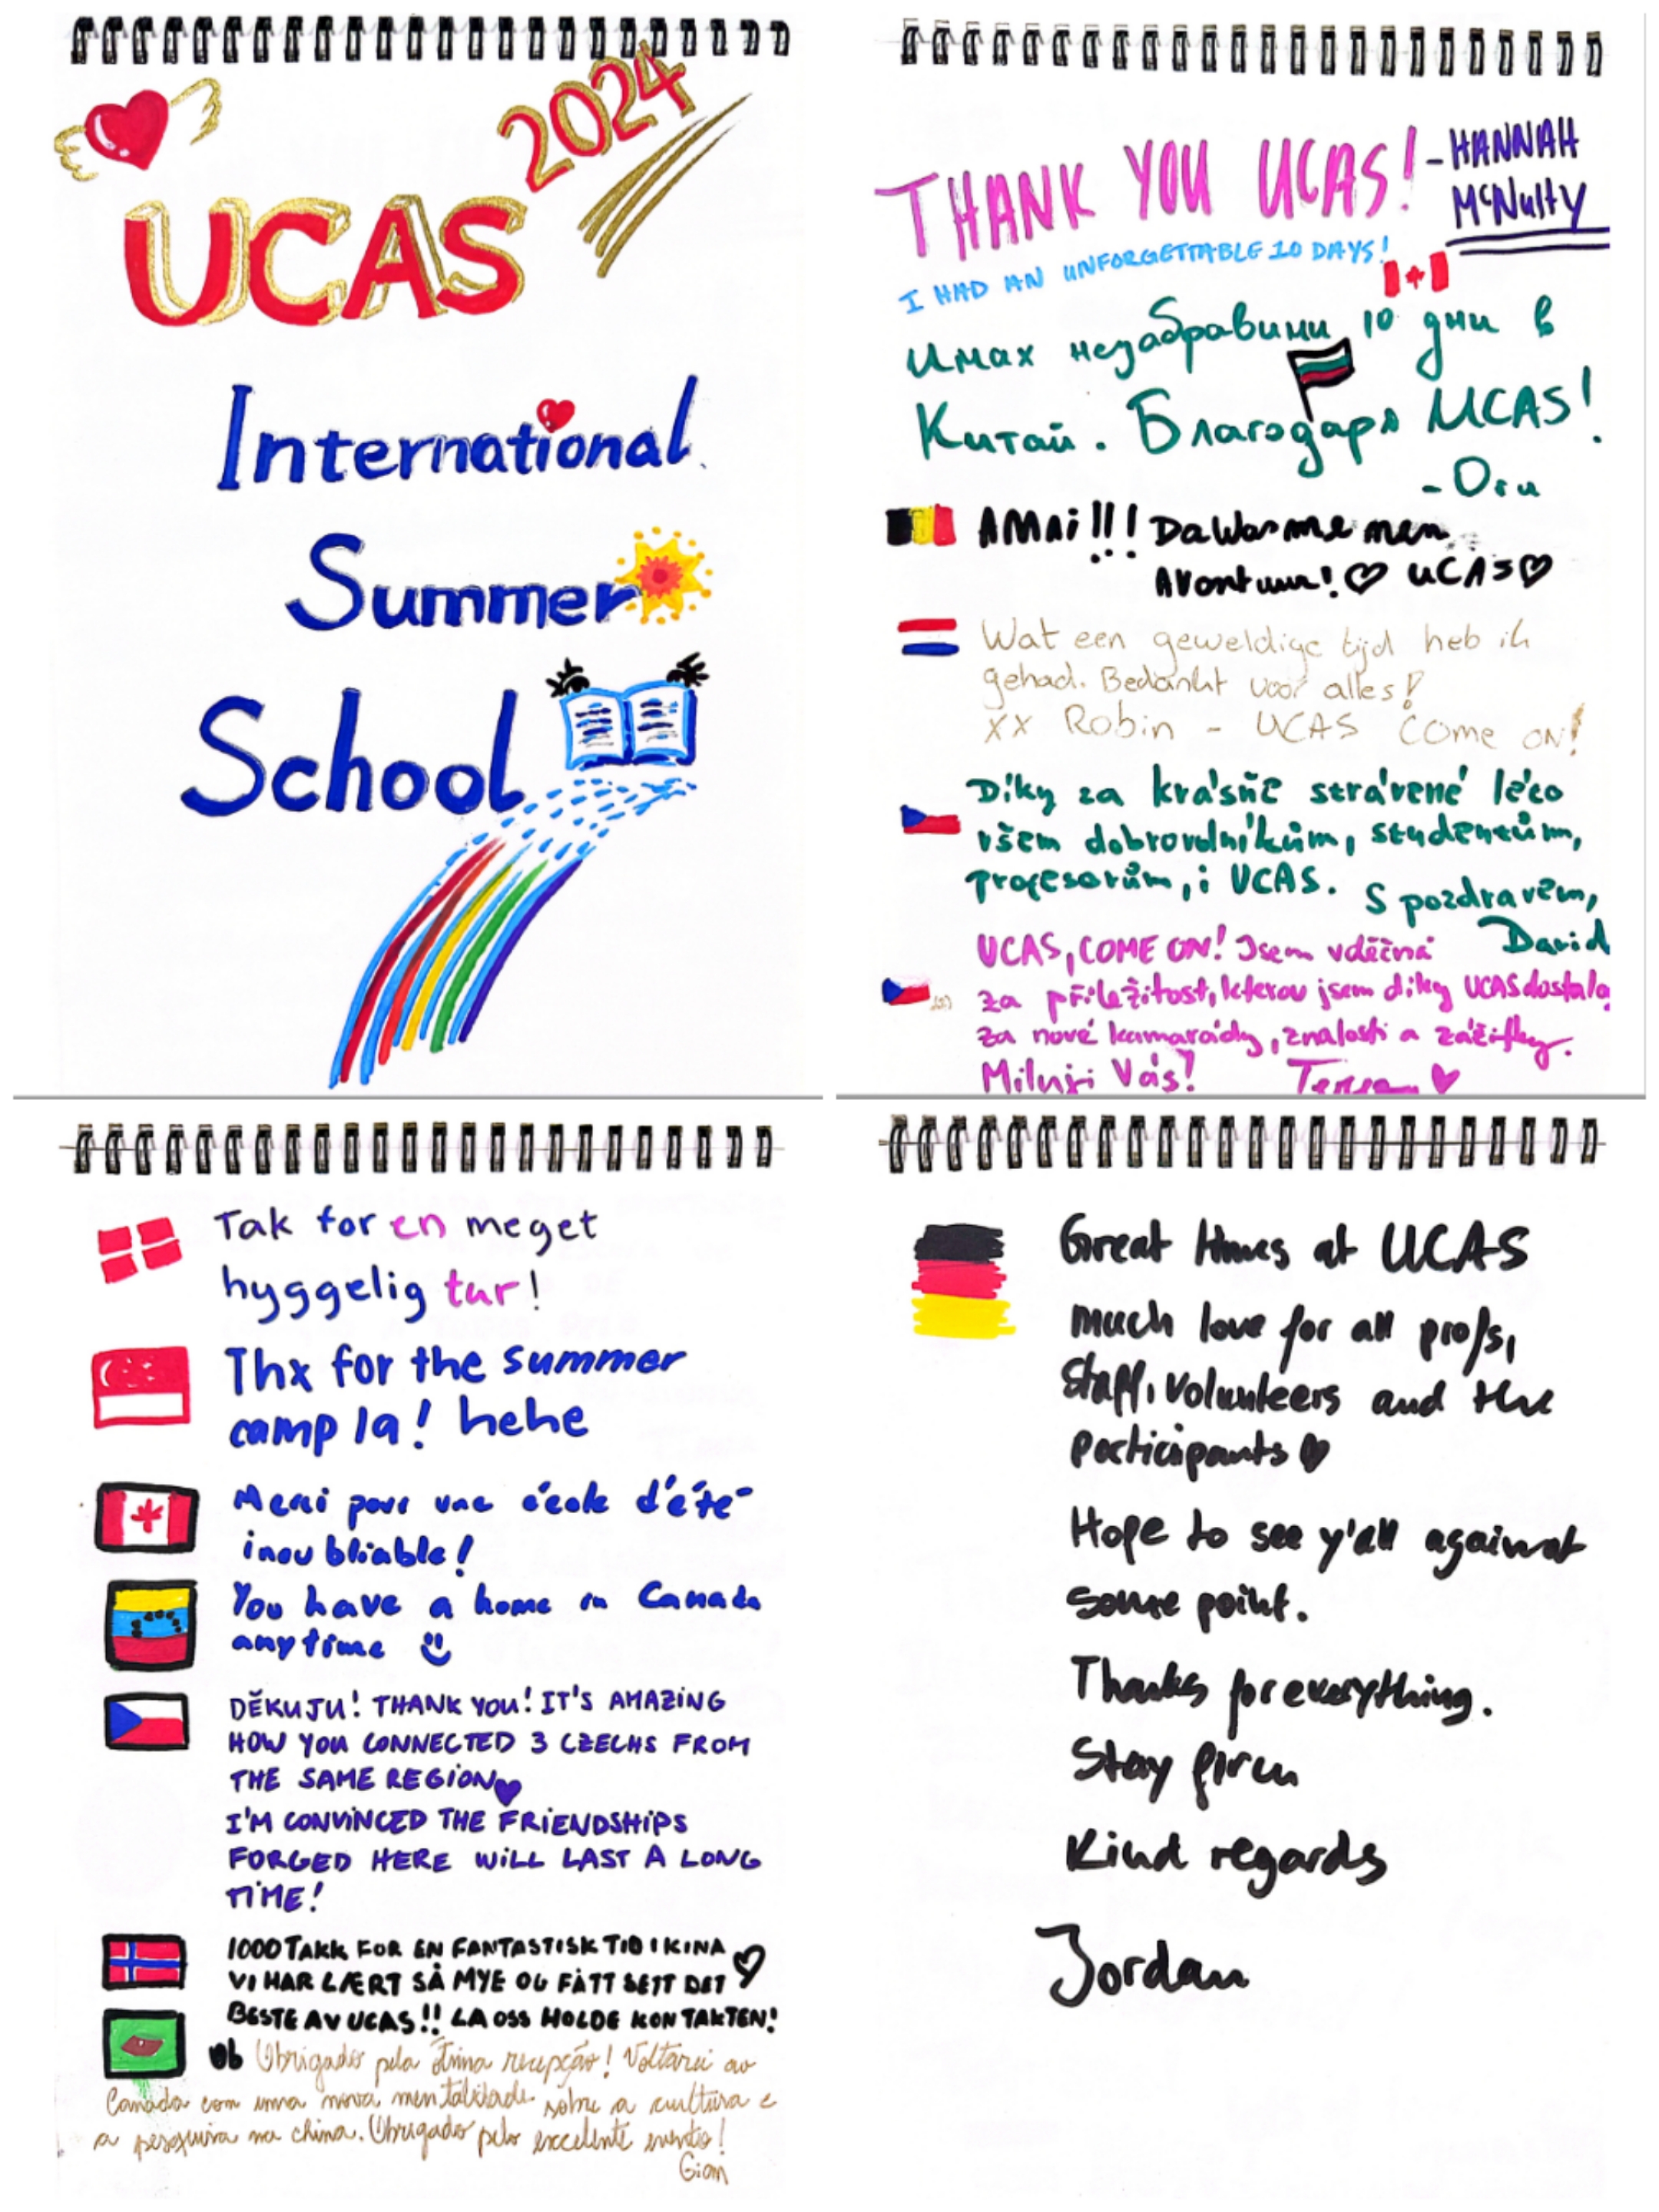 2024
UCAS
International
Summer
School
THANK YOU UCAS! - HANNAH
McNulty
I HAD AN UNFORGETTABLE 10 DAYS!
Имах незабравими 10 дни в
Китай. Благодаря UCAS!
- Огu
AMAi!!! Da Was me nen
Avontuur! ♡ UCAS ♡
Wat een geweldige tijd heb ik
gehad. Bedankt voor alles!
XX Robin - UCAS COME ON!
Díky za krásně strávené léto
všem dobrovolníkům, studentům,
profesorům, i UCAS. S pozdravem,
David
UCAS, COME ON! Jsem vděčná
za příležitost, kterou jsem díky UCAS dostala,
za nové kamarády, znalosti a zážitky.
Miluji Vás! Tereza ♥
Tak for en meget
hyggelig tur!
Thx for the summer
camp la! hehe
Merci pour une école d'été
inoubliable!
You have a home in Canada
anytime
DĚKUJU! THANK YOU! IT'S AMAZING
HOW YOU CONNECTED 3 CZECHS FROM
THE SAME REGION ♥
I'M CONVINCED THE FRIENDSHIPS
FORGED HERE WILL LAST A LONG
TIME!
1000 TAKK FOR EN FANTASTISK TID I KINA
VI HAR LÆRT SÅ MYE OG FÅTT SETT DET
BESTE AV UCAS!! LA OSS HOLDE KONTAKTEN!
Ob Obrigado pela ótima recepção! Voltarei ao
Canada com uma nova mentalidade sobre a cultura e
a pesquisa na china. Obrigado pelo excelente evento!
Gian
Great times at UCAS
Much love for all profs,
Staff, volunteers and the
participants ♥
Hope to see y'all again at
some point.
Thanks for everything.
Stay
Kind regards
Jordan